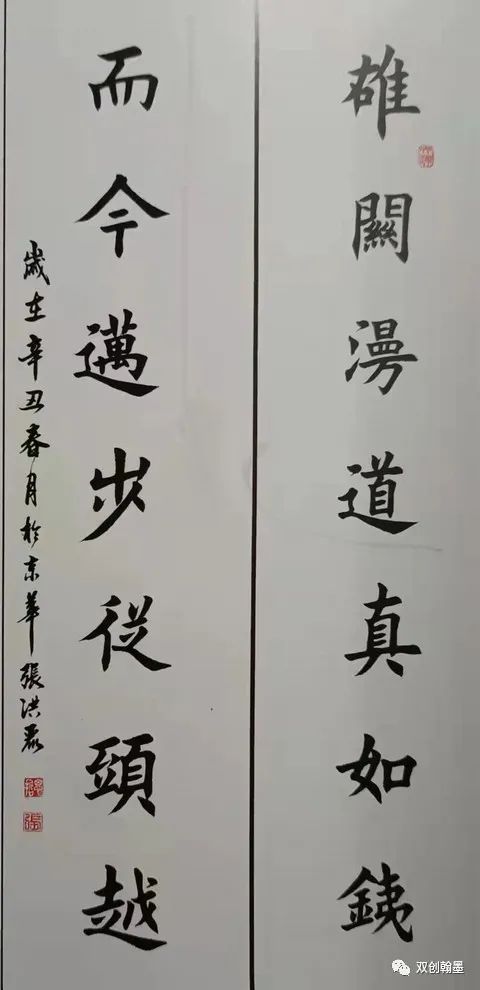 雄關漫道真如鉄
而今邁步從頭越
歲在辛丑春月於京華張洪磊
双创翰墨